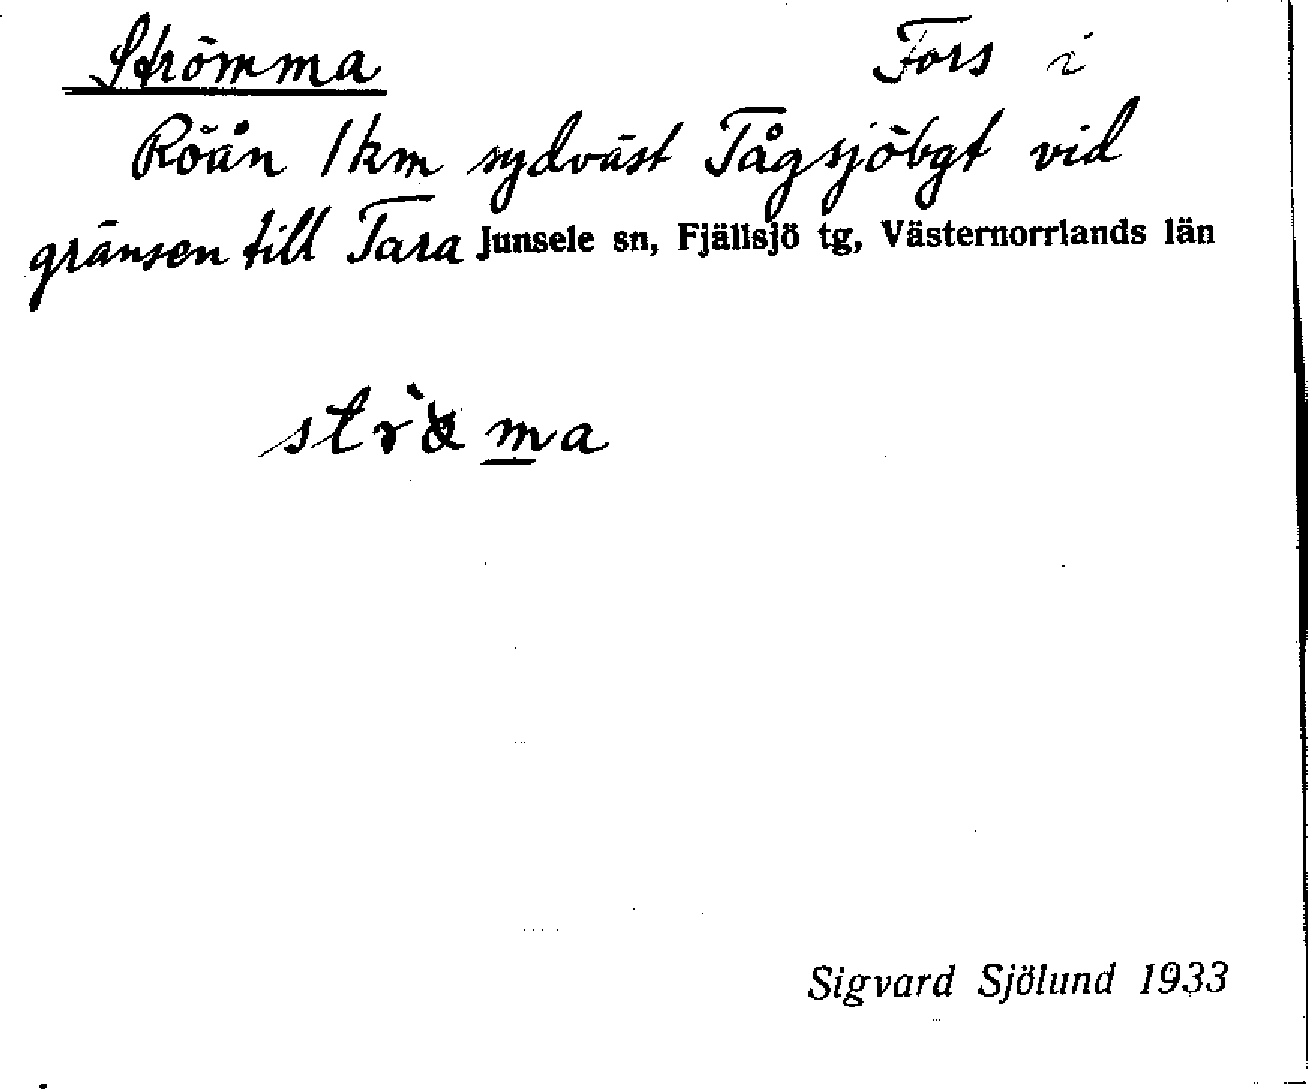 Strömma Fors i
Röån 1 km sydväst Tågsjöbgt vid
gränsen till Tara Junsele sn, Fjällsjö tg, Västernorrlands län
Sigvard Sjölund 1933